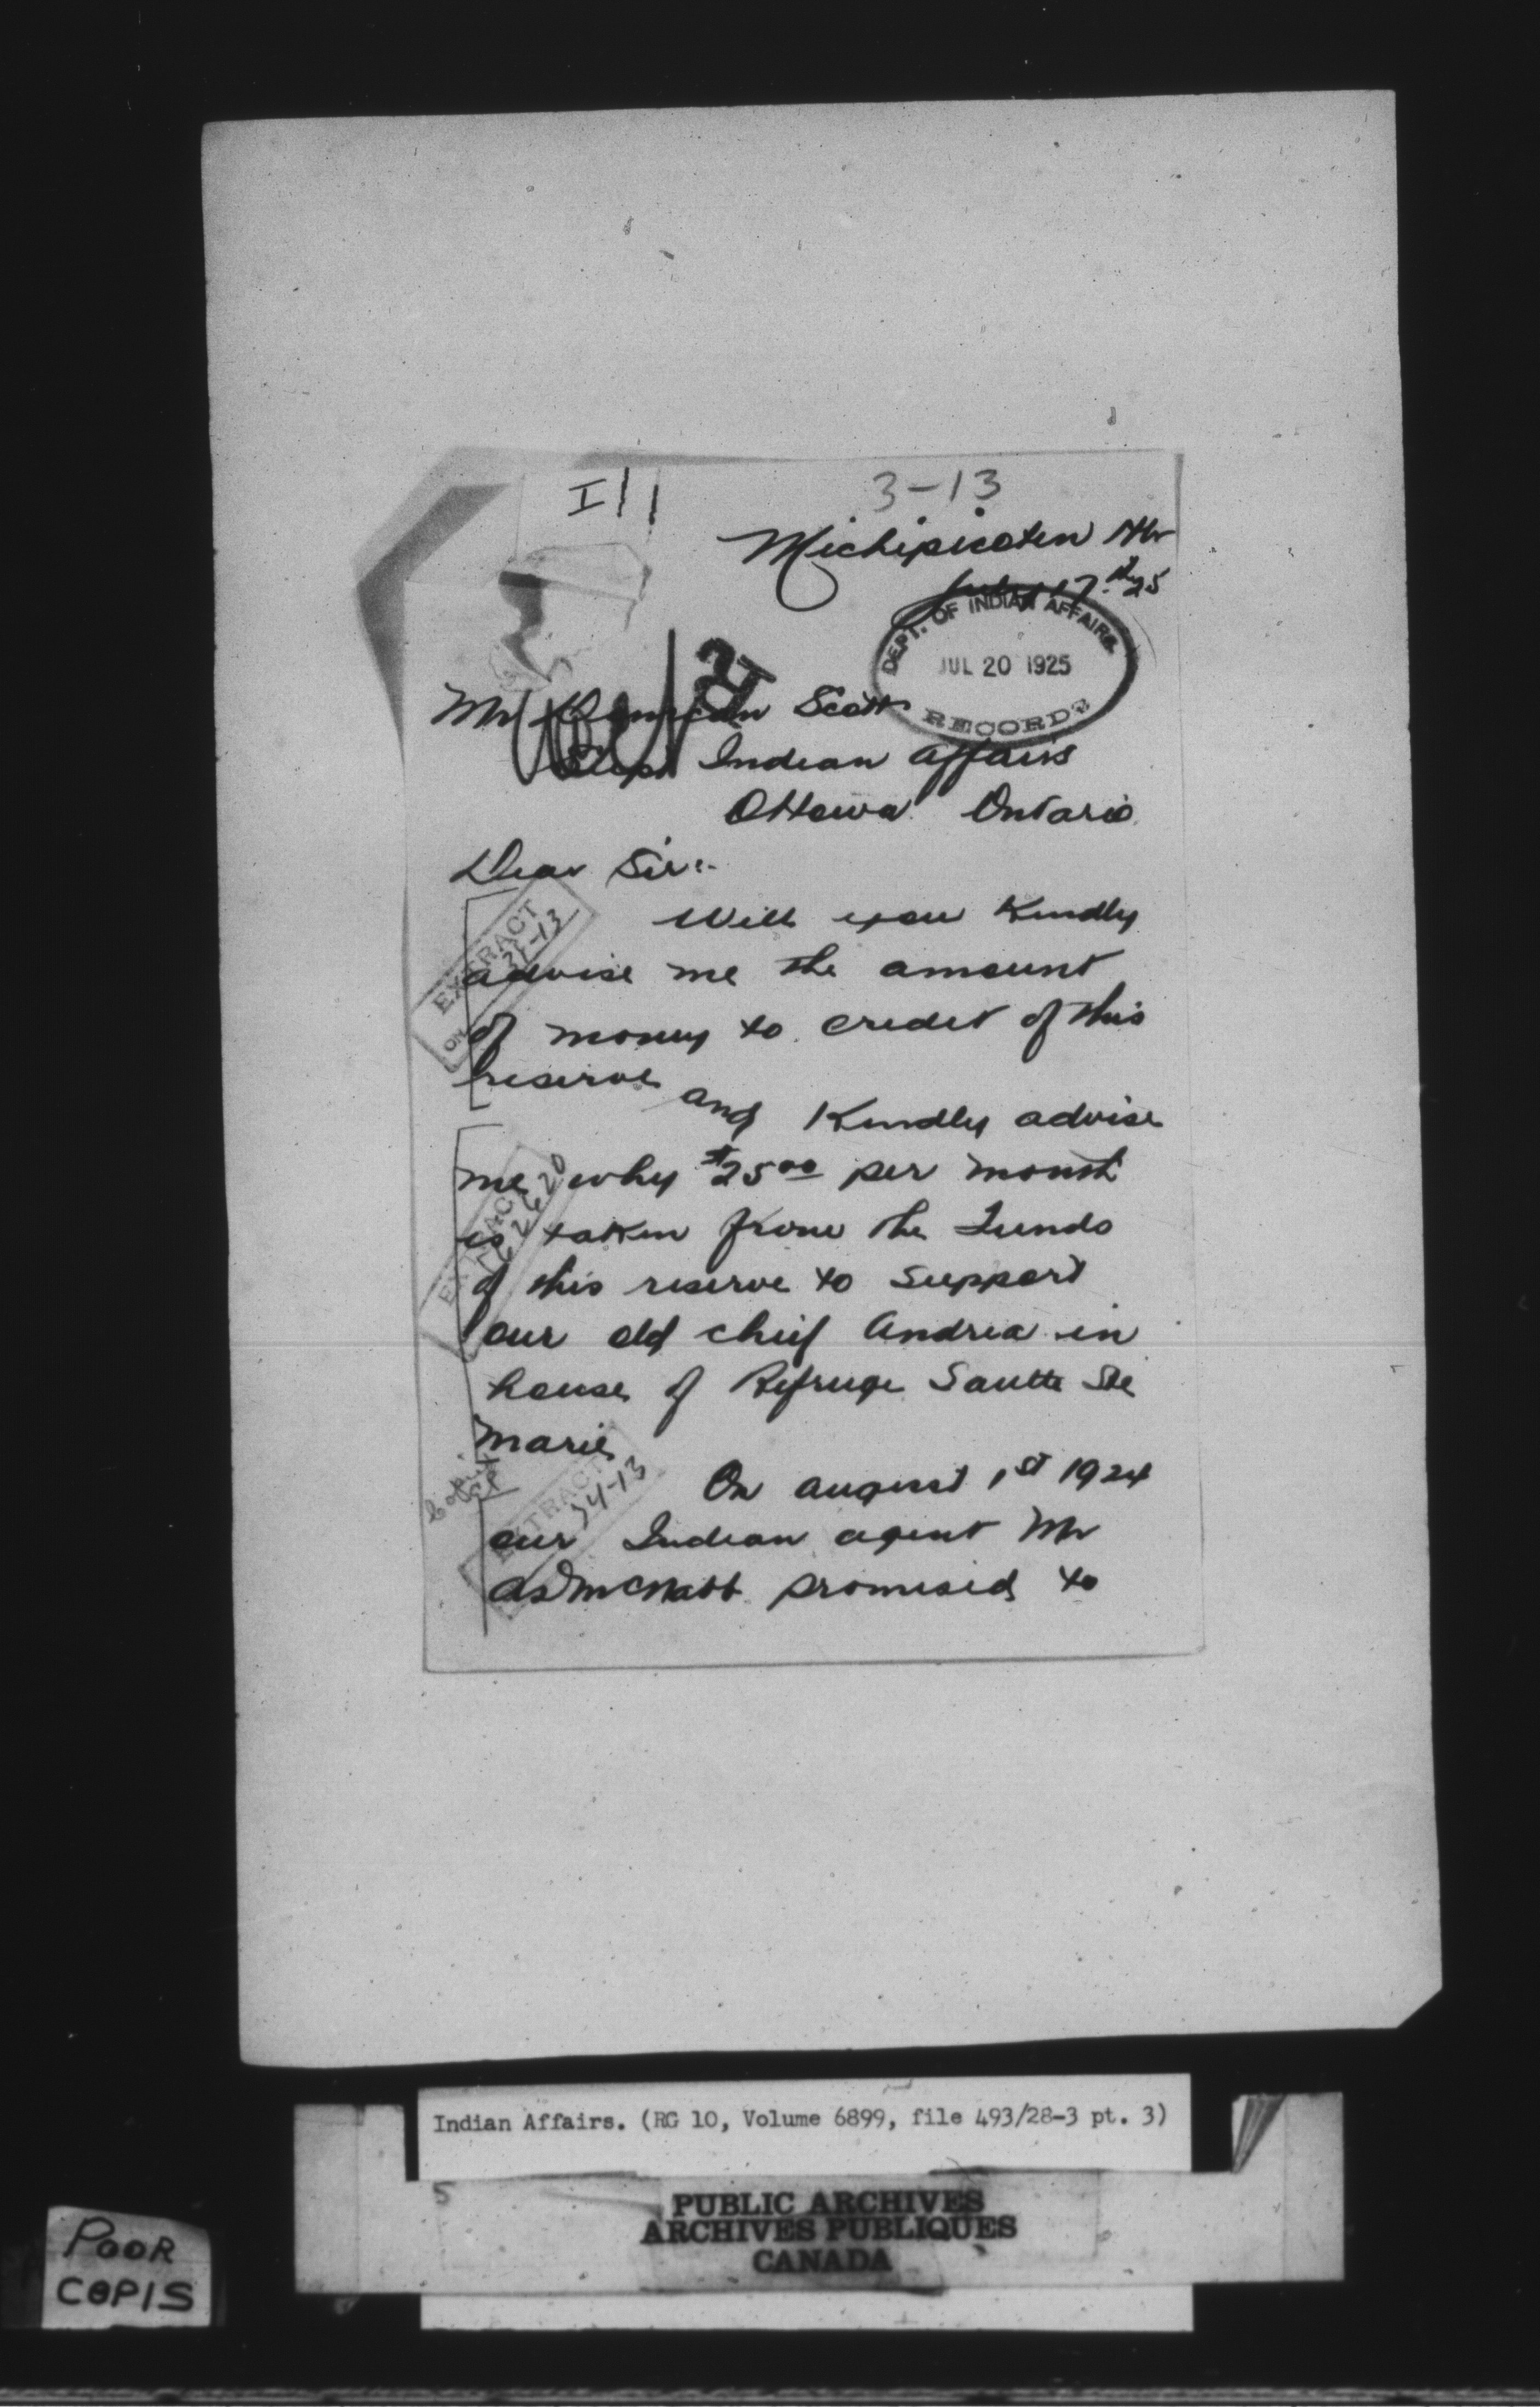 I11
3-13
Michipicoten Hbr
July 17th 25
DEPT. OF INDIAN AFFAIRS
JUL 20 1925
RECORDS
Mr Scott
Supt Indian Affairs
Ottawa Ontario.
Dear Sir:-
Will you Kindly
advise me the amount
of money to credit of this
reserve
and Kindly advise
me why $25.00 per month
is taken from the Funds
of this reserve to support
our old chief Andrea in
house of Refruge Saulte Ste
Marie
On august 1st 1924
our Indian agent Mr
McNabb promised to
EXTRACT
ON 31-13
EXTRACT
EXTRACT
24-13
Indian Affairs. (RG 10, Volume 6899, file 493/28-3 pt. 3)
5
PUBLIC ARCHIVES
ARCHIVES PUBLIQUES
CANADA
POOR
COPIS